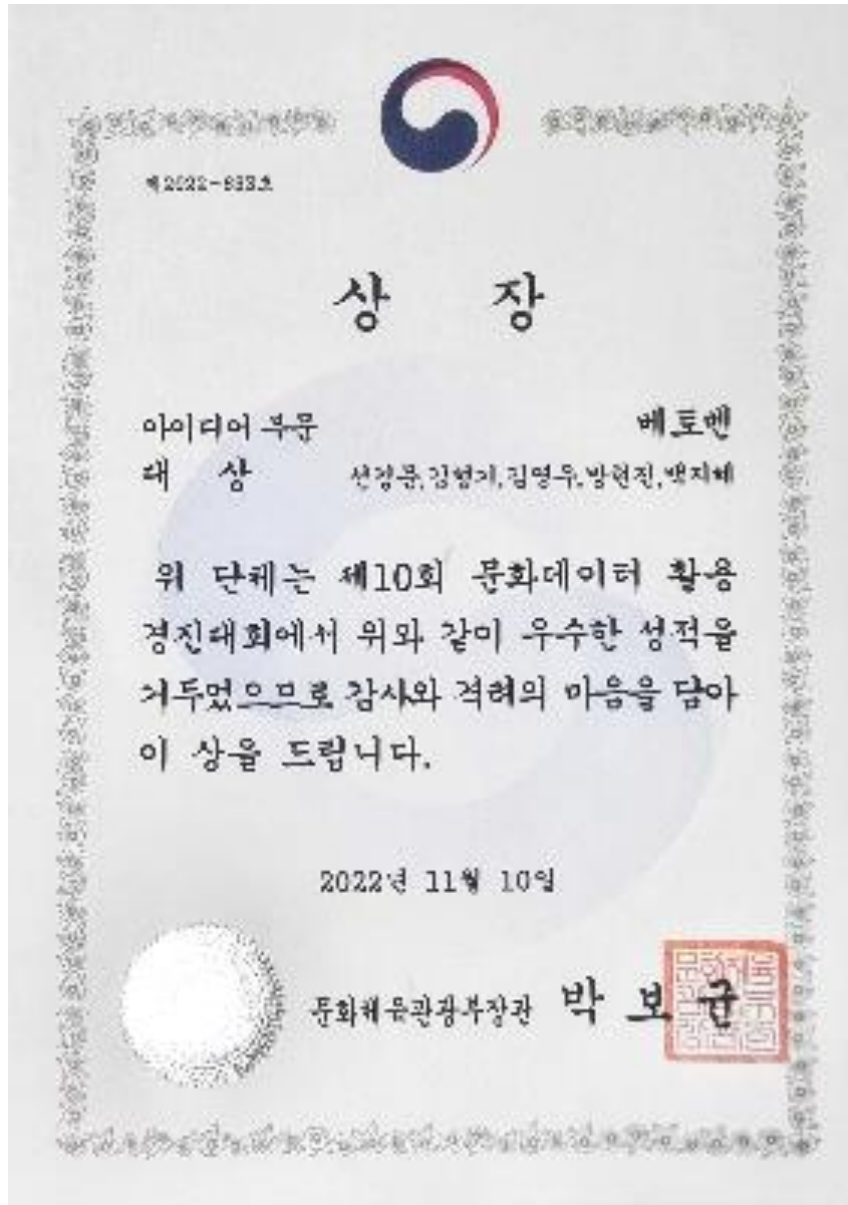 상 장
아이디어 부문 베토벤
대 상 선경문,김형기,김영우,방현진,백지혜
위 단체는 제10회 문화데이터 활용
경진대회에서 위와 같이 우수한 성적을
거두었으므로 감사와 격려의 마음을 담아
이 상을 드립니다.
2022년 11월 10일
문화체육관광부장관 박보균